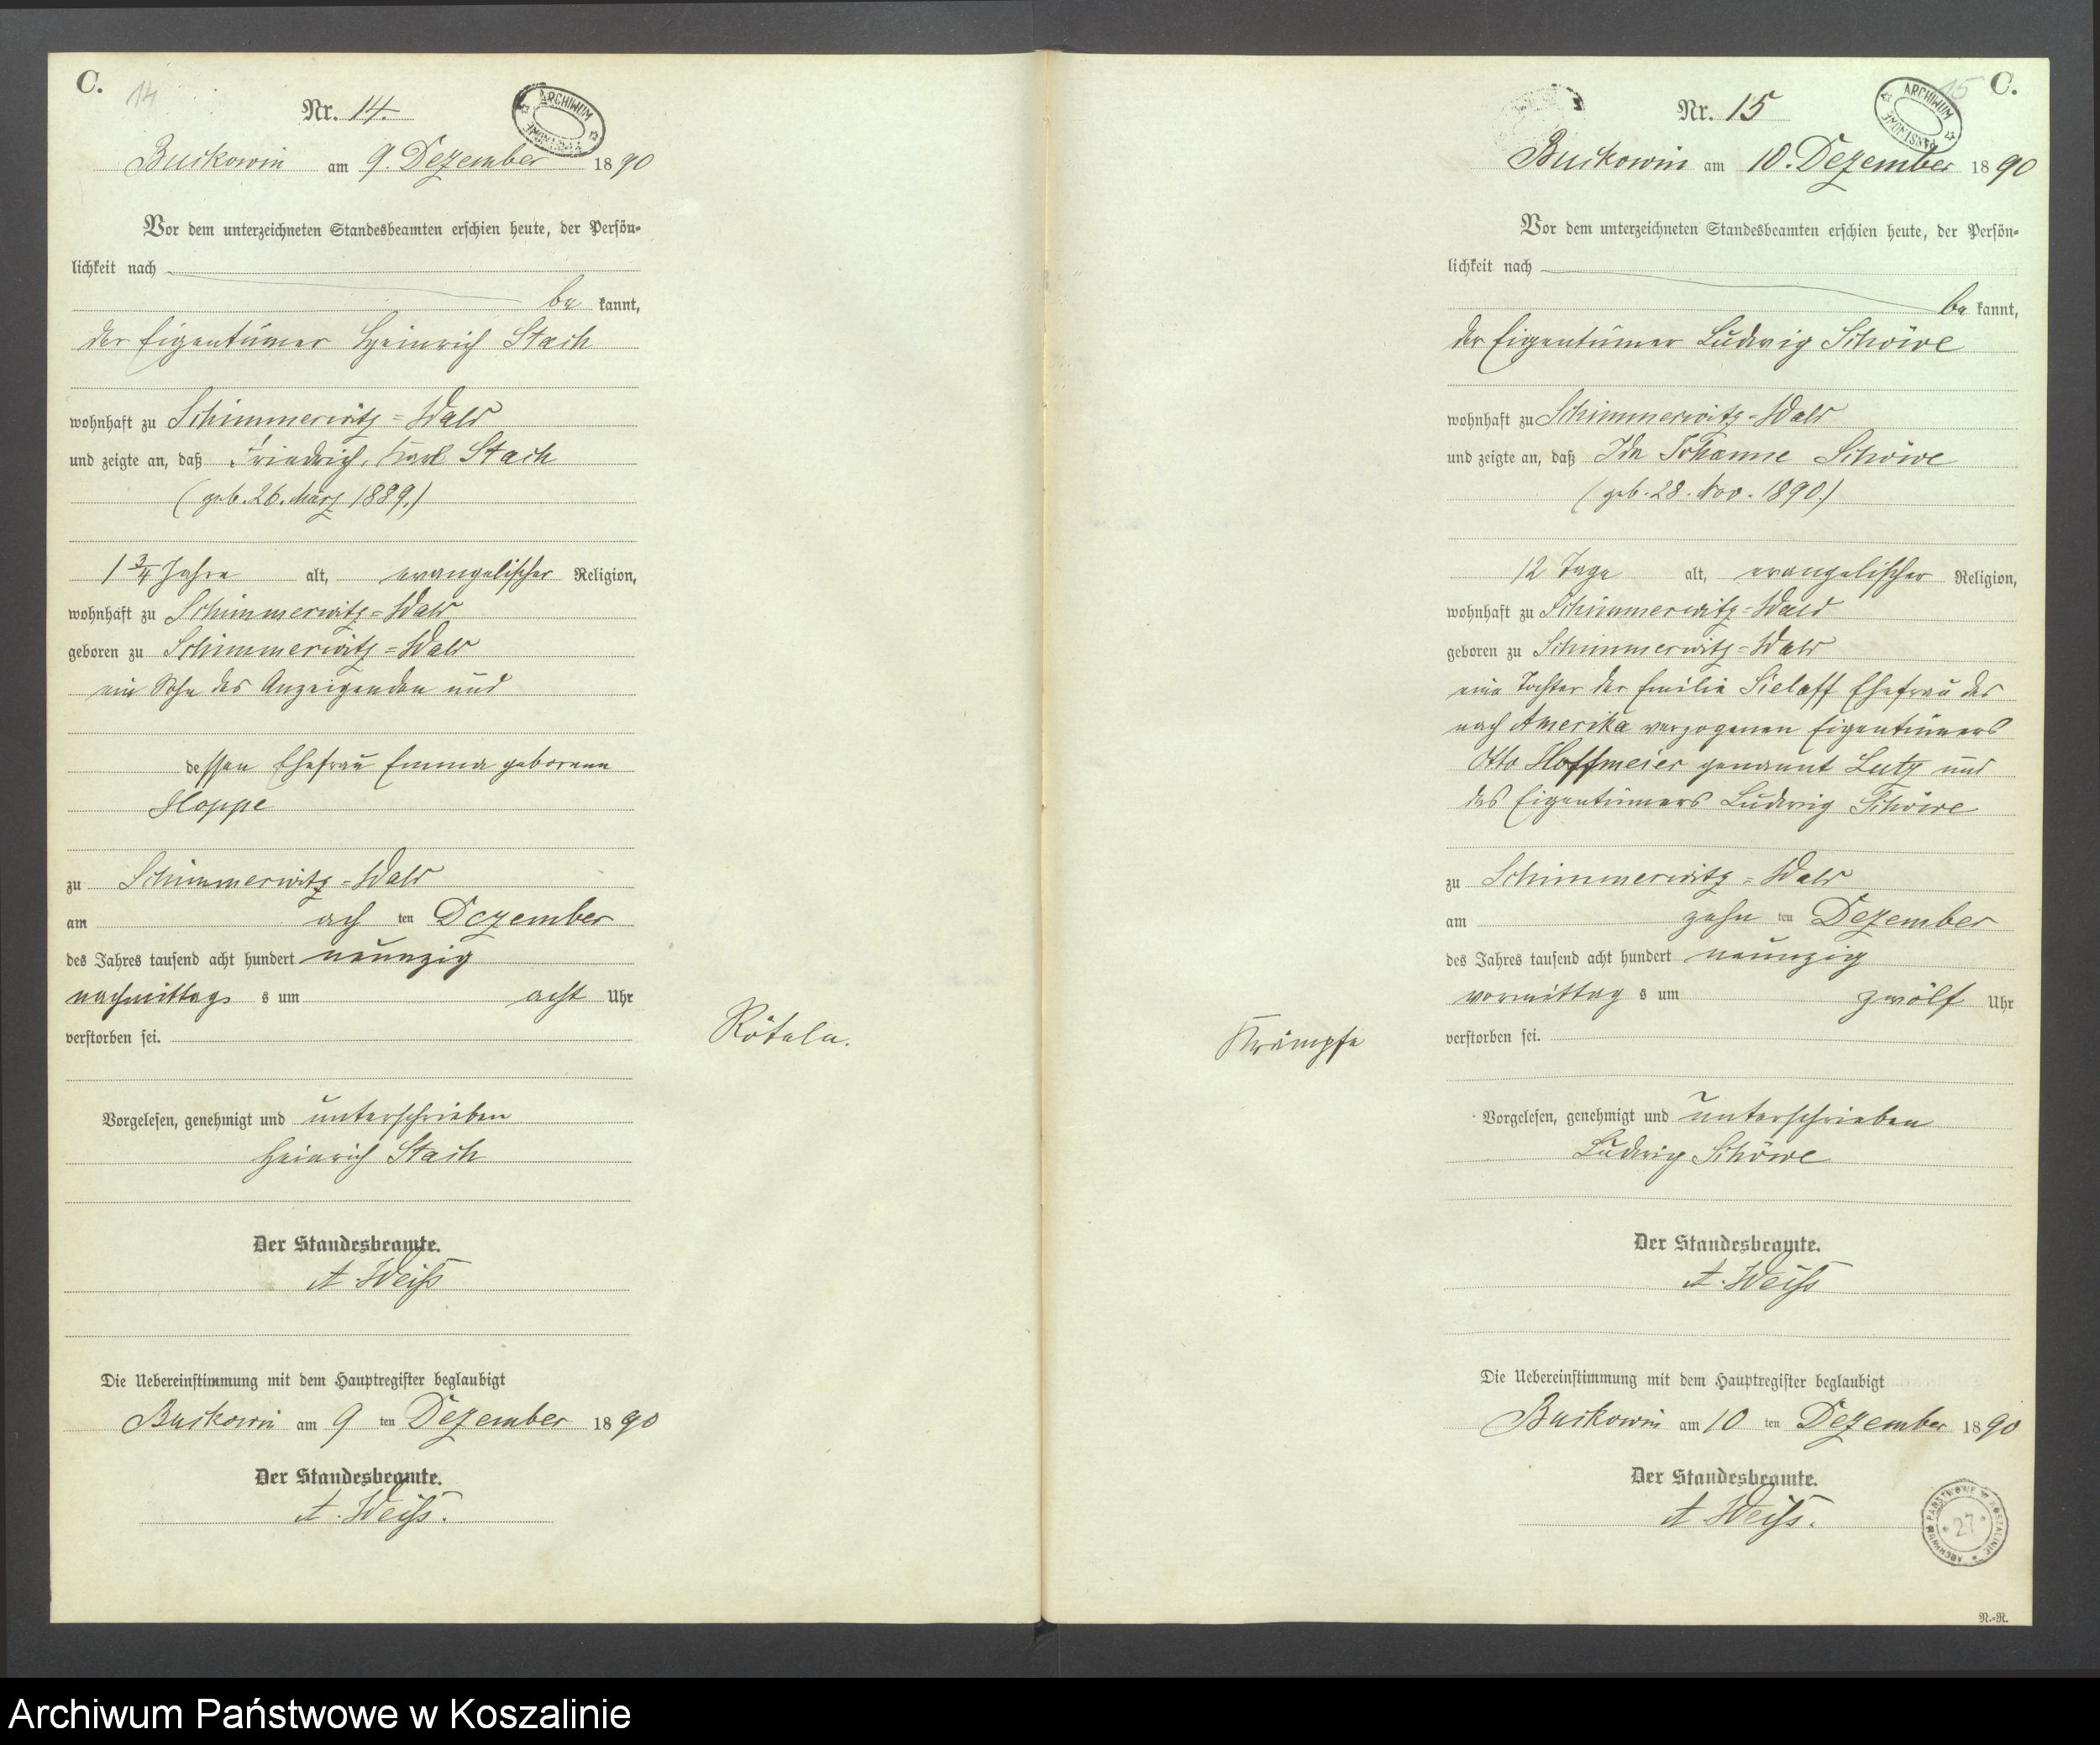 C.
14
Nr. 14.
ARCHIWUM PAŃSTWOWE
Buckowin am 9. Dezember 1890
Vor dem unterzeichneten Standesbeamten erschien heute, der Persön-
lichkeit nach
be kannt,
der Eigentümer Heinrich Stach
wohnhaft zu Schimmerwitz=Wald
und zeigte an, daß Friedrich, Karl Stach
(geb. 26. März 1889.)
1 3/4 Jahre alt, evangelischer Religion,
wohnhaft zu Schimmerwitz=Wald
geboren zu Schimmerwitz=Wald
ein Sohn des Anzeigenden und
dessen Ehefrau Emma geborene
Hoppe
zu Schimmerwitz=Wald
am ach ten Dezember
des Jahres tausend acht hundert neunzig
nachmittags s um acht Uhr
verstorben sei.
Röteln.
Vorgelesen, genehmigt und unterschrieben
Heinrich Stach
Der Standesbeamte.
A. Weiß
Die Uebereinstimmung mit dem Hauptregister beglaubigt
Buckowin am 9 ten Dezember 1890
Der Standesbeamte.
A. Weiß.
15 C.
Nr. 15
ARCHIWUM PAŃSTWOWE
Buckowin am 10. Dezember 1890
Vor dem unterzeichneten Standesbeamten erschien heute, der Persön-
lichkeit nach
be kannt,
der Eigentümer Ludwig Schöwe
wohnhaft zu Schimmerwitz-Wald
und zeigte an, daß Ida Johanne Schöwe
(geb. 28. Nov. 1890.)
12 Tage alt, evangelischer Religion,
wohnhaft zu Schimmerwitz=Wald
geboren zu Schimmerwitz=Wald
eine Tochter der Emilie Sielaff Ehefrau des
nach Amerika verzogenen Eigentümers
Otto Hoffmeier genannt Lutz und
des Eigentümers Ludwig Schöwe
zu Schimmerwitz=Wald
am zehn ten Dezember
des Jahres tausend acht hundert neunzig
vormittag s um zwölf Uhr
verstorben sei.
Krämpfe
Vorgelesen, genehmigt und unterschrieben
Ludwig Schöwe
Der Standesbeamte.
A. Weiß
Die Uebereinstimmung mit dem Hauptregister beglaubigt
Buckowin am 10 ten Dezember 1890
Der Standesbeamte.
A. Weiß.
ARCHIWUM PAŃSTWOWE W KOSZALINIE * 27 *
R.-R.
Archiwum Państwowe w Koszalinie